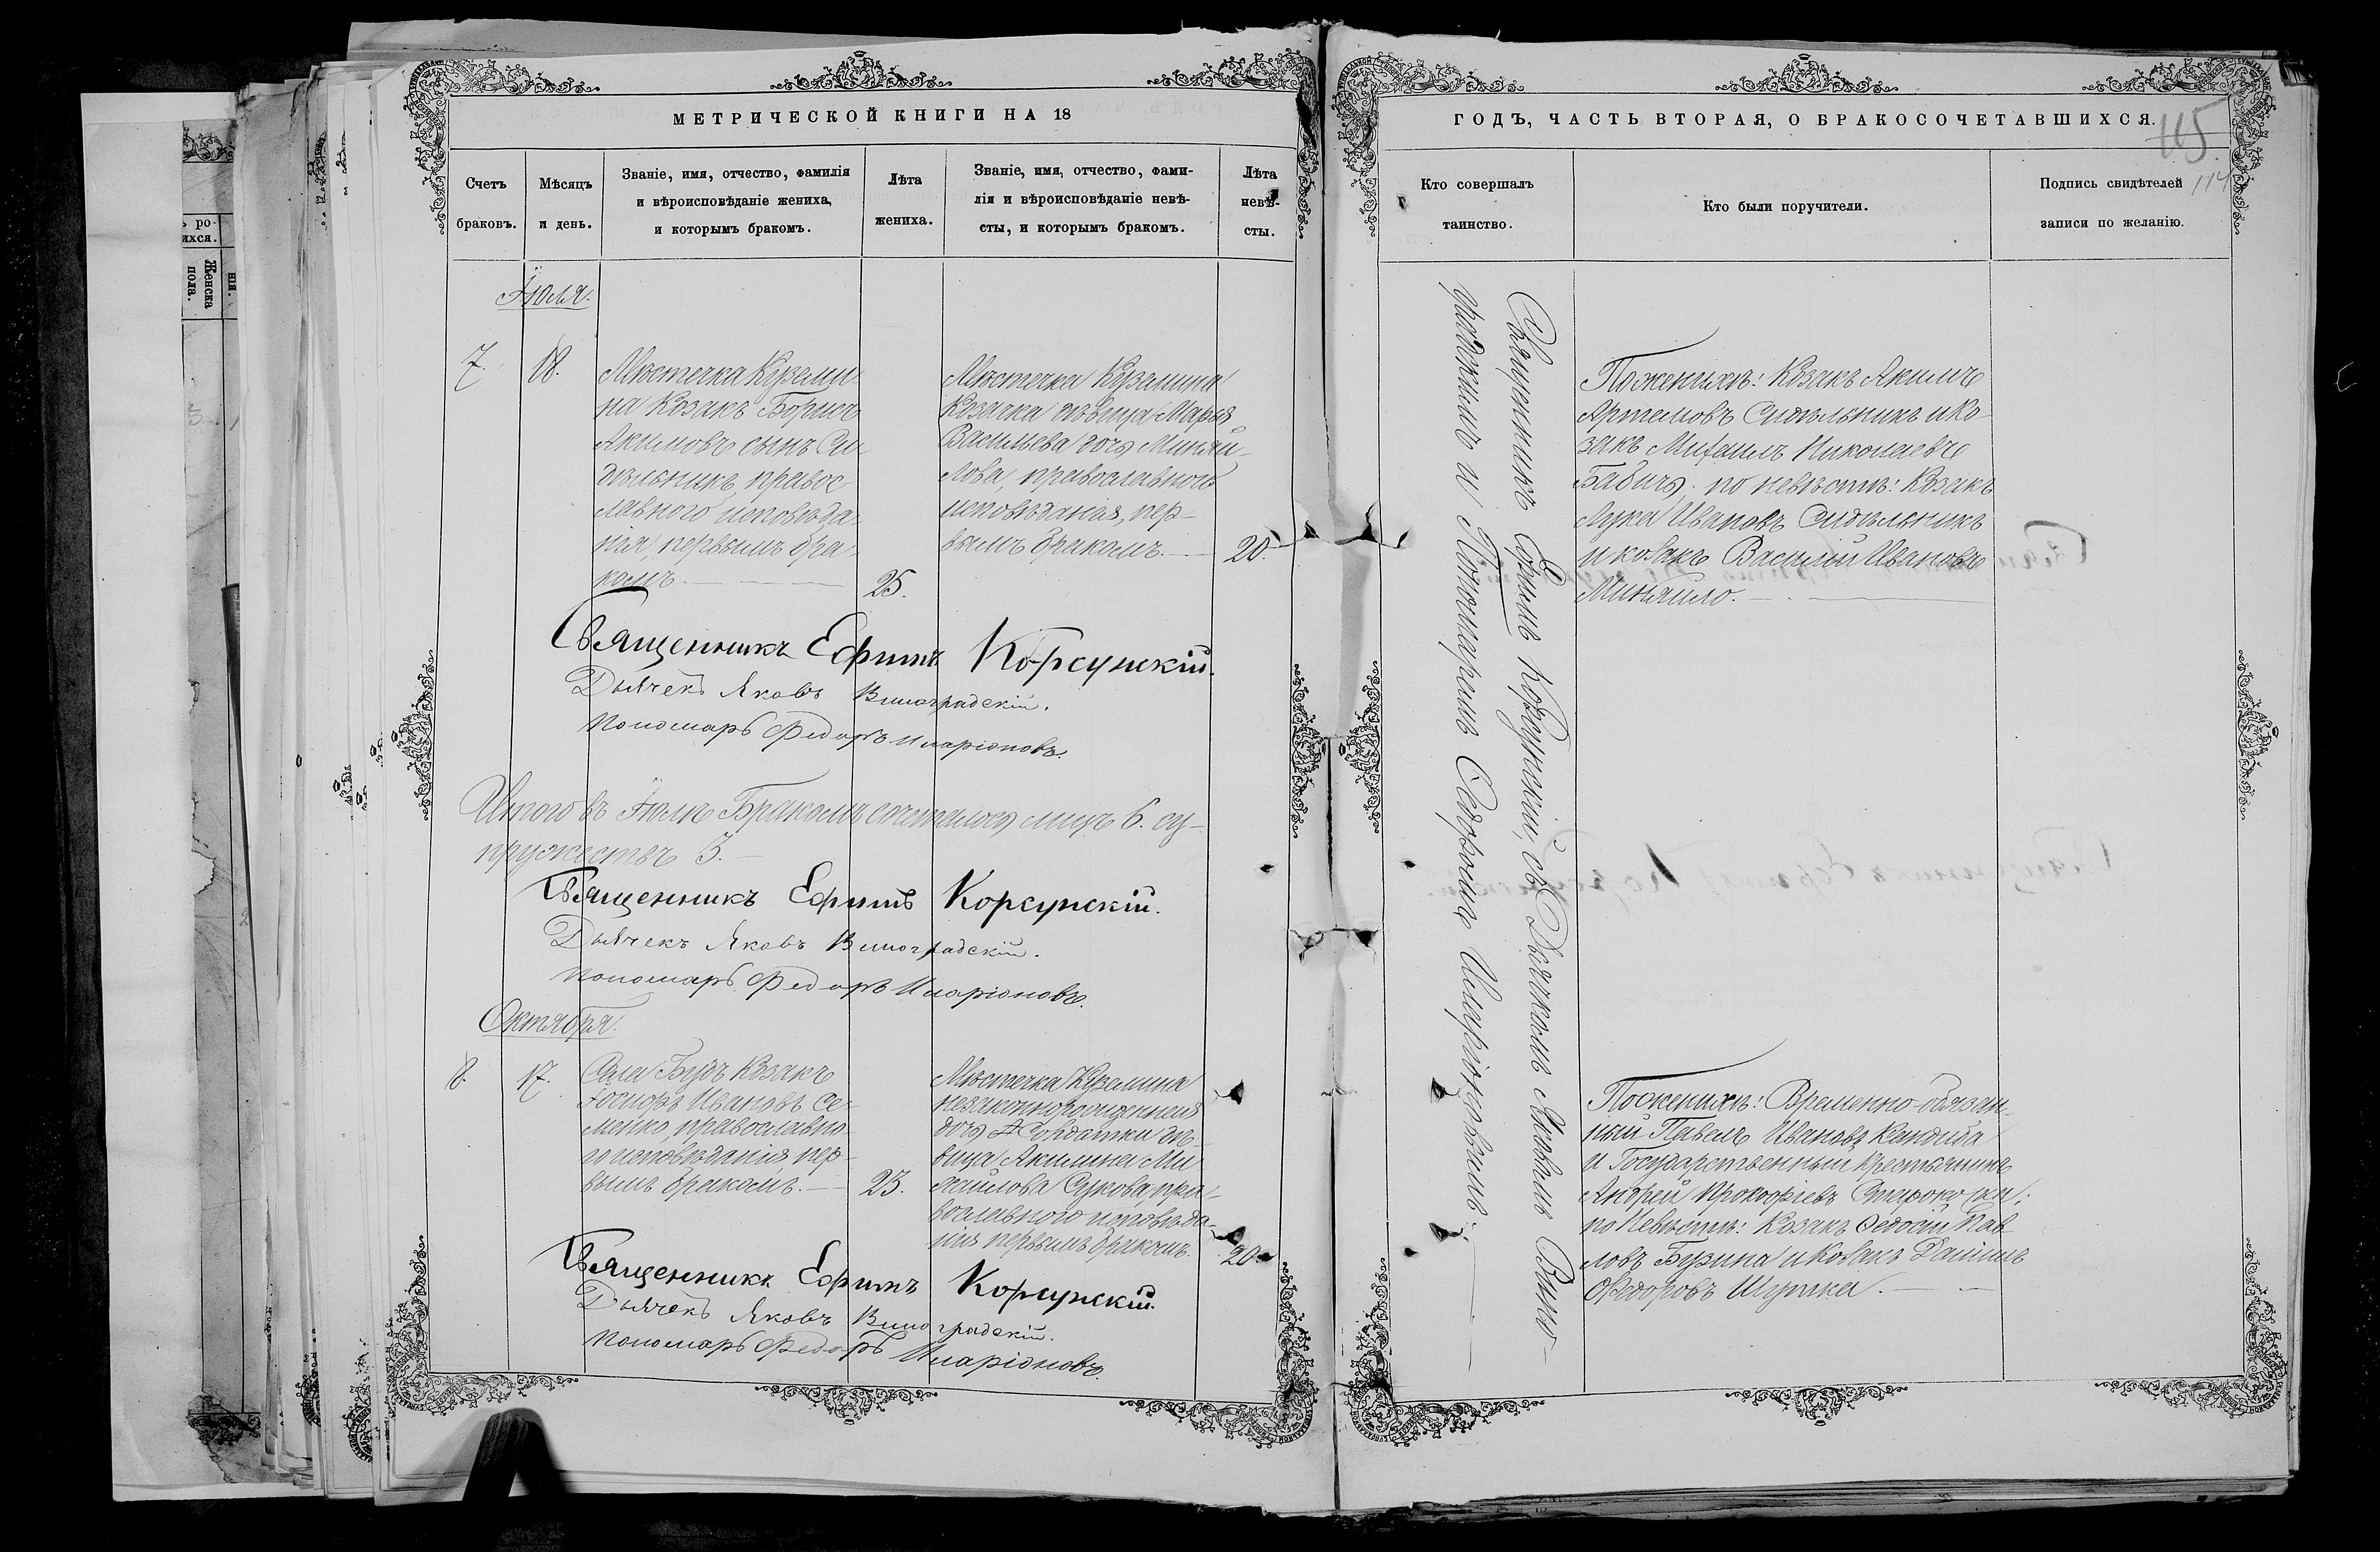 МЕТРИЧЕСКОЙ КНИГИ НА 18
Счетъ браковъ.
Мѣсяцъ и день.
Званіе, имя, отчество, фамилія
и вѣроисповѣданіе жениха,
и которымъ бракомъ.
Лѣта
жениха.
Званіе, имя, отчество, фами-
лія и вѣроисповѣданіе невѣ-
сты, и которымъ бракомъ.
Лѣта
невѣ-
сты.
Іюля.
7.
18.
Мѣстечка Куземи-
на Козакъ Борисъ
Акимовъ сынъ Си-
дѣльникъ, правос-
лавного исповѣда-
нія, первымъ бра-
комъ.
25.
Мѣстечка Куземина
Козачка дѣвица Марья
Васильева дочь Миняй-
лова, православного
исповѣданія, пер-
вымъ бракомъ.
20.
Священникъ Ефимъ Корсунскій.
Дьячекъ Яковъ Виноградскій.
Пономарь Федоръ Иларіоновъ.
Итого въ Іюлѣ Бракомъ сочеталось лицъ 6. су-
пружествъ 3.
Священникъ Ефимъ Корсунскій.
Дьячекъ Яковъ Виноградскій.
Пономарь Федоръ Иларіоновъ.
Октября.
8.
17.
Села Будъ Козакъ
Іосифъ Ивановъ Се-
менко, православно-
го исповѣданія пер-
вымъ бракомъ.
23.
Мѣстечка Куземина
незаконнорожденная
дочь Солдатки дѣ-
вица Акилина Ми-
хайлова Сукова пра-
вославного исповѣда-
нія первымъ бракомъ.
20.
Священникъ Ефимъ Корсунскій.
Дьячекъ Яковъ Виноградскій.
Пономарь Федоръ Иларіоновъ.
ГОДЪ, ЧАСТЬ ВТОРАЯ, О БРАКОСОЧЕТАВШИХСЯ.
115.
114
Кто совершалъ
таинство.
Кто были поручители.
Подпись свидѣтелей
записи по желанію.
Священникъ Ефимъ Корсунскій, съ Дьячкомъ Яковомъ Вино-
градскимъ и Пономаремъ Федоромъ Иларіоновымъ.
По женихѣ: Козакъ Акимъ
Артемовъ Сидѣльникъ и Ко-
закъ Михаилъ Николаевъ
Бабичъ; по невѣстѣ: Козакъ
Лука Ивановъ Сидѣльникъ
и козакъ Василій Ивановъ
Миняйло.
По женихѣ: Временно-обязан-
ный Павелъ Ивановъ Кандиба
и Государственный крестьянинъ
Андрей Прокофіевъ
по Невѣстѣ: Козакъ Федосій Пав-
ловъ Бузина и Козакъ Даніилъ
Федоровъ Шутка.